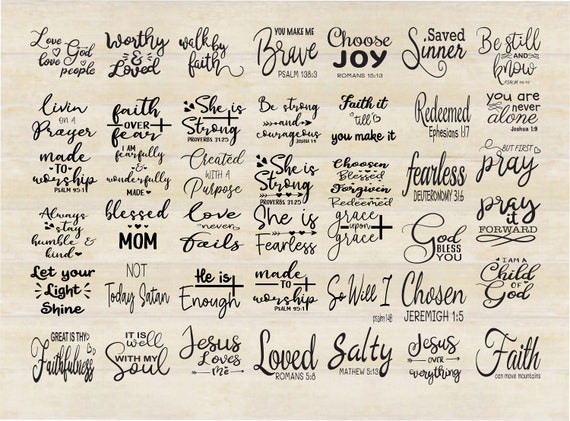 Love God
love people
Worthy
&
Loved
walk by
faith
YOU MAKE ME
Brave
PSALM 138:3
Choose
JOY
ROMANS 15:13
Saved
Sinner
Be still
AND
know
PSALM 46:10
livin
ON A
Prayer
faith
OVER
fear
She is
Strong
PROVERBS 31:25
Be strong
and
courageous
JOSHUA 1:9
Faith it
'till
you make it
Redeemed
Ephesians 1:7
you are
never
alone
Joshua 1:9
made
TO
worship
PSALM 95:1
I AM
fearfully
&
wonderfully
MADE
Created
WITH A
Purpose
She is
Strong
PROVERBS 31:25
Choosen
Blessed
Forgiven
Redeemed
fearless
DEUTERONOMY 31:6
BUT FIRST
pray
Always
stay
humble &
kind
blessed
MOM
love
never
fails
She is
Fearless
grace
upon
grace
God
BLESS
YOU
pray
it
FORWARD
Let your
Light
Shine
NOT
Today Satan
He is
Enough
made
TO
worship
PSALM 95:1
So Will I
psalm 148
Chosen
JEREMIGH 1:5
I AM A
Child
OF
God
GREAT IS THY
Faithfulness
IT IS
well
WITH MY
Soul
Jesus
Loves
Me
Loved
ROMANS 5:8
Salty
MATHEW 5:13
Jesus
over
everything
Faith
can move mountains